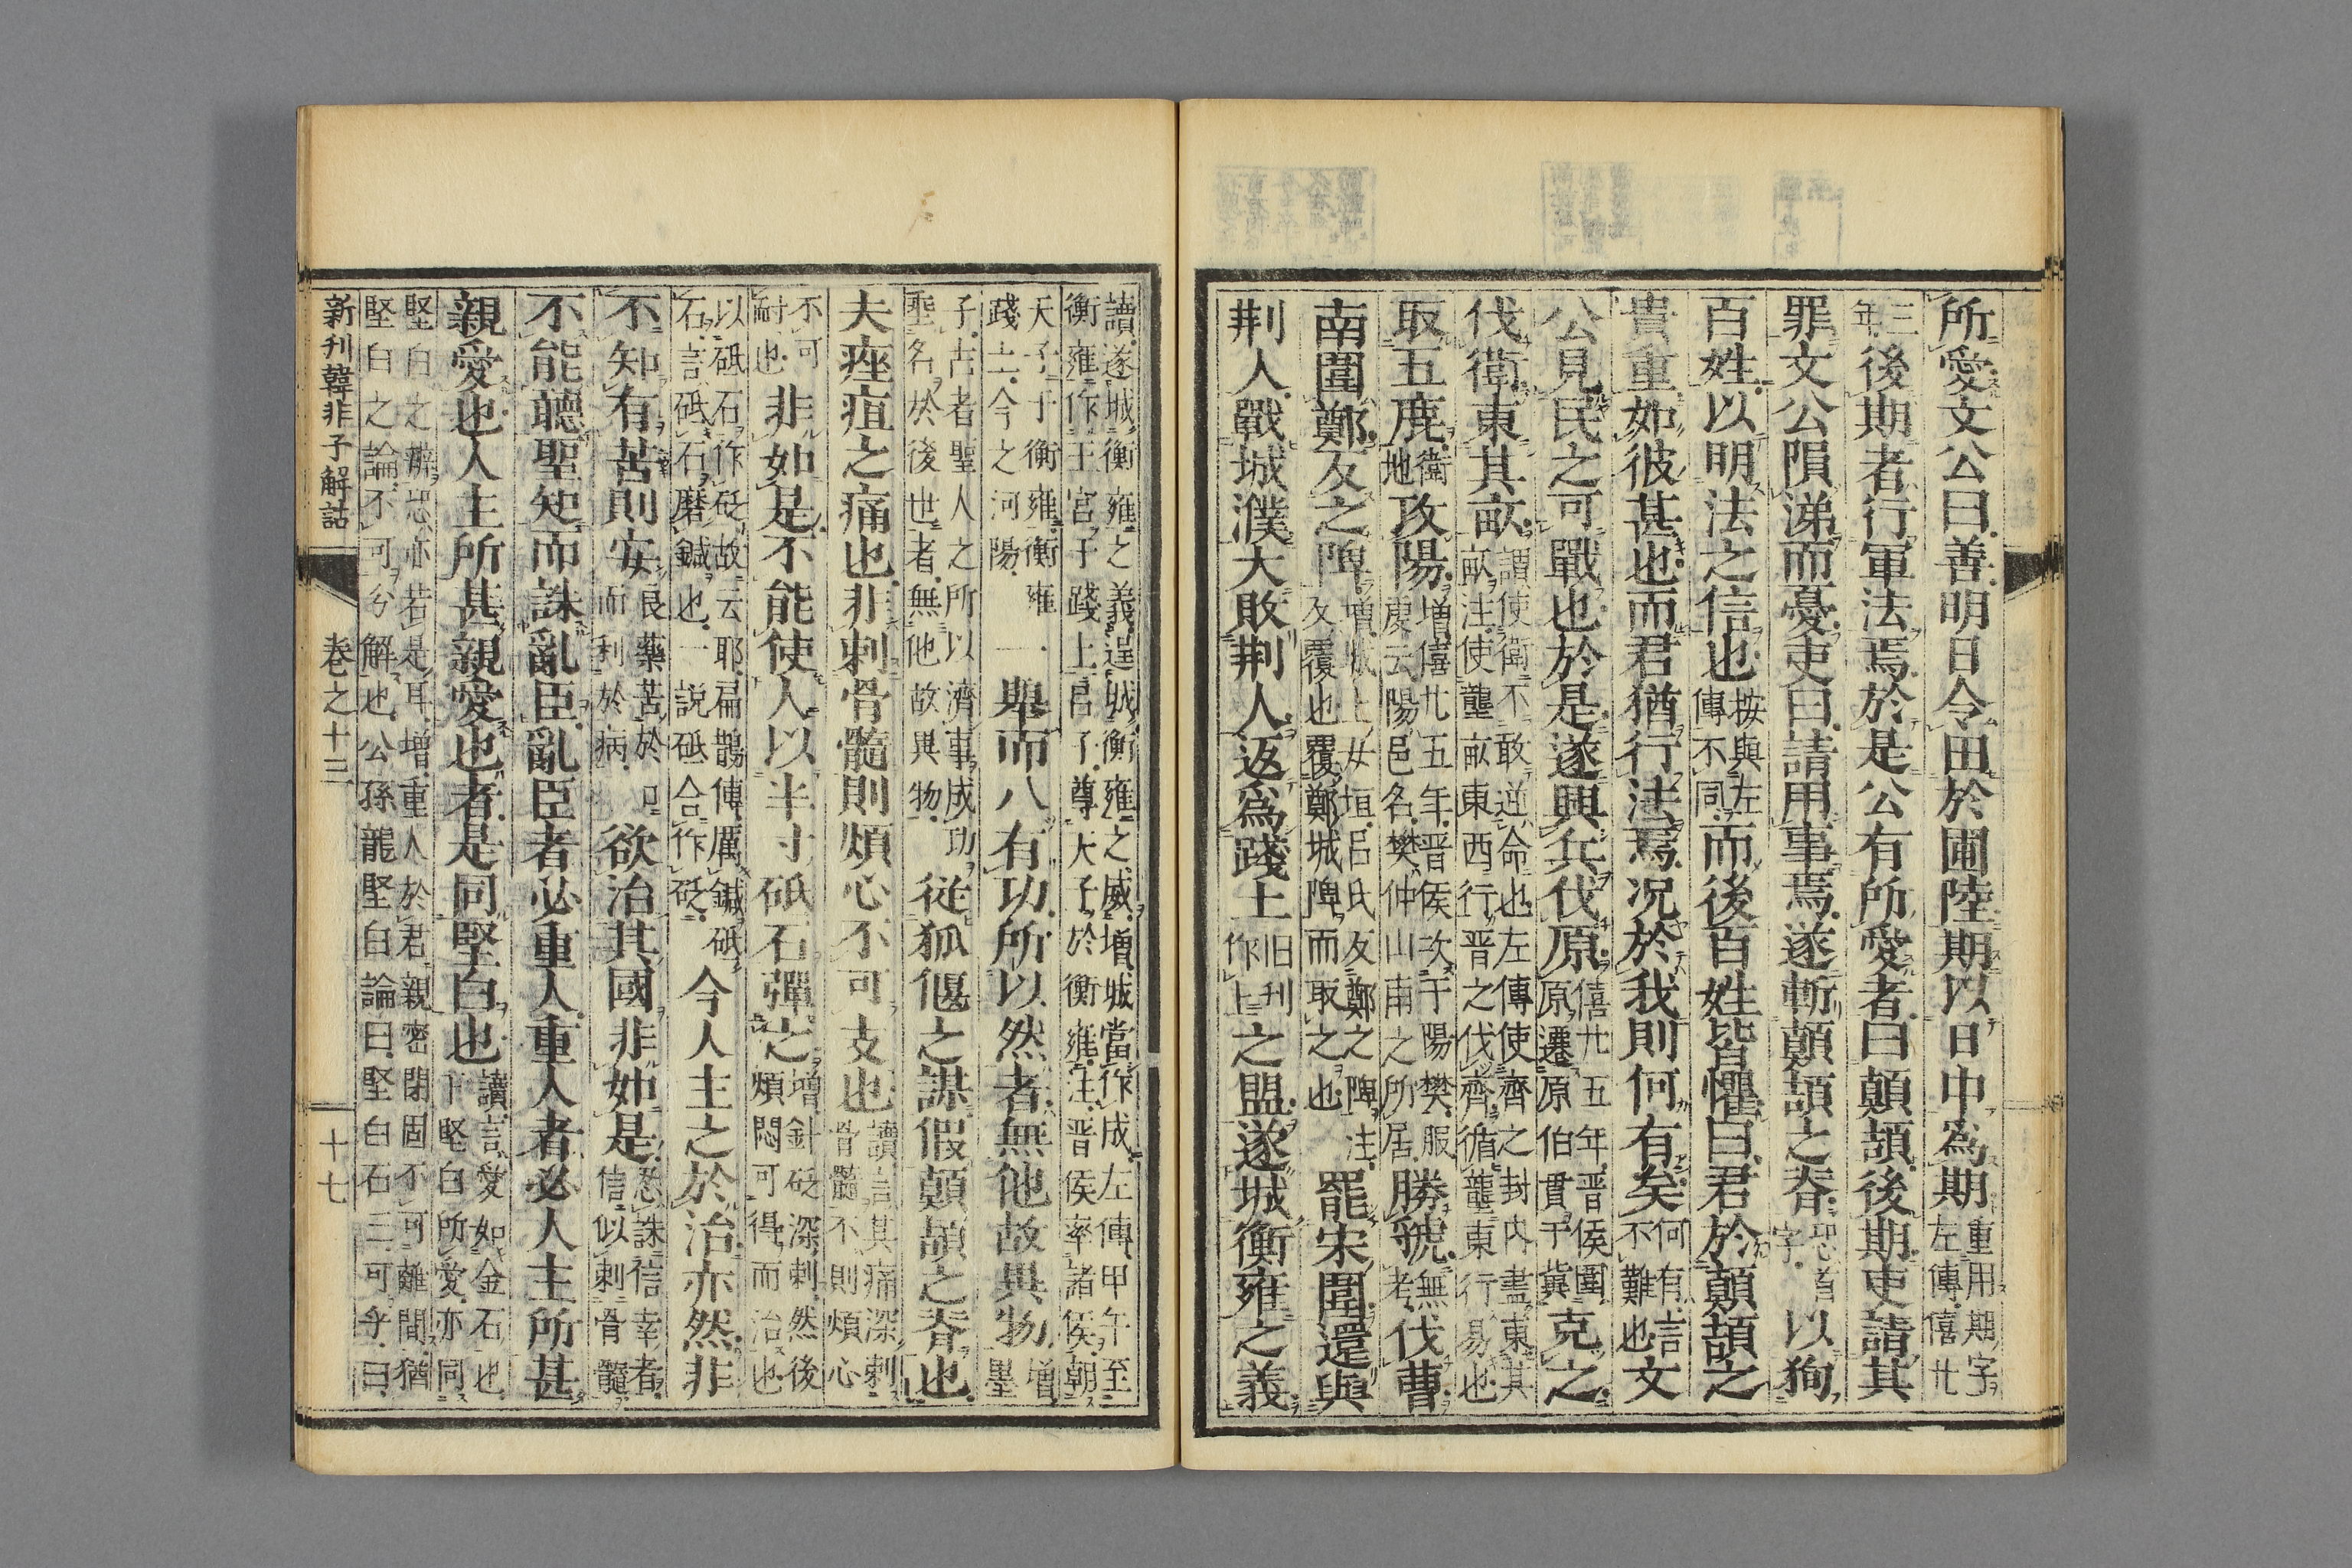 所愛文公曰善明日令田於圃陸期以日中為期重用期字左傳僖廿
三年後期者行軍法焉於是公有所愛者曰顛頡後期吏請其
罪文公隕涕而憂吏曰請用事焉遂斬顛頡之脊恐首字以狥
百姓以明法之信也按與左傳不同而後百姓皆懼曰君於顛頡之
貴重如彼甚也而君猶行法焉况於我則何有矣何有言不難也文
公見民之可戰也於是遂興兵伐原僖廿五年晋侯圍原遷原伯貫于冀克之
伐衛東其畝謂使衛不敢逆命也左傳使齊之封内盡東其畝注使壟畝東西行晋之伐齊循壟東行易也
取五鹿衛地攻陽増僖廿五年晋侯次于陽樊服虔云陽邑名樊仲山甫之所居勝虢無考伐曹
南圍鄭反之陴増城上女垣吕氏反鄭之陴注反覆也覆鄭城陴而取之也罷宋圍還與
荆人戰城濮大敗荆人返為踐土旧刊作上之盟遂城衡雍之義
讀遂城衡雍之義逞城衡雍之威増城當作成左傳甲午至衡雍作王宮于踐土吕子尊天子於衡雍注晋侯率諸侯朝
天子于衡雍衡雍踐土今之河陽一舉而八有功所以然者無他故異物増墨
子古者聖人之所以濟事成功聖名於後世者無他故異物從狐偃之謀假顛頡之脊也
夫痤疽之痛也非刺骨髓則煩心不可支也讀言其痛深刺骨髓不則煩心
不可耐也非如是不能使人以半寸砥石彈之増針砭深刺然後煩悶可得而治也
以砥石作砭故云耶扁鵲傳厲鍼砥石言砥石磨鍼也一説砥合作砭今人主之於治亦然非
不知有苦則安良藥苦於口而利於病欲治其國非如是恐誅信幸者信似刺骨髓
不能聽聖知而誅亂臣亂臣者必重人重人者必人主所甚
親愛也人主所甚親愛也者是同堅白也讀言愛如金石也下堅白所愛亦同
堅白之辨恐亦若是耳増重人於君親密閉固不可離間猶堅白之論不可分解也公孫龍堅白論曰堅白石三可乎曰
新刊韓非子解詁
巻之十三
十七